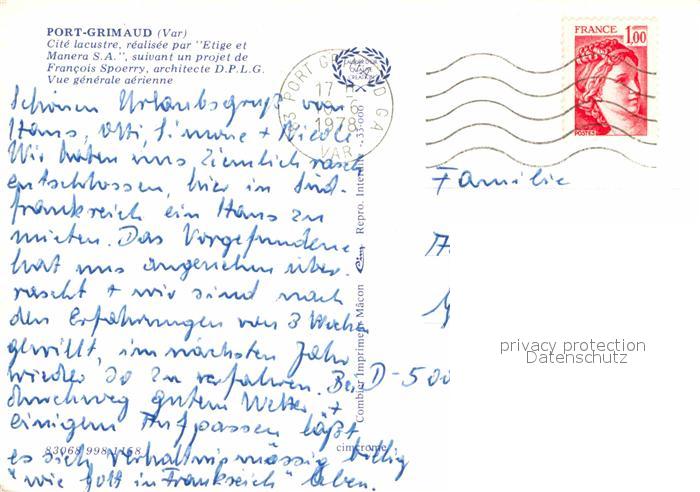 PORT-GRIMAUD (Var)
Cité lacustre, réalisée par "Etige et
Manera S.A.", suivant un projet de
François Spoerry, architecte D.P.L.G.
Vue générale aérienne
FRANCE 1,00
POSTES
83 PORT GRIMAUD
17 H
1978
VAR
Schönen Urlaubsgruß von
Hans, Otti, Simone + Nicole
Wir haben uns ziemlich rasch
entschlossen, hier in Süd-
frankreich ein Haus zu
mieten. Das Vorgefundene
hat uns angenehm über-
rascht + wir sind nach
den Erfahrungen von 3 Wochen
gewillt, im nächsten Jahr
wieder so zu verfahren. Bei
durchweg gutem Wetter +
einigem Aufpassen läßt
es sich verhältnismässig billig
"wie Gott in Frankreich" leben.
Familie
D-500
83068 998 1158
cim krome
Combier Imprimeur Mâcon Cim Repro. Interdite
privacy protection
Datenschutz